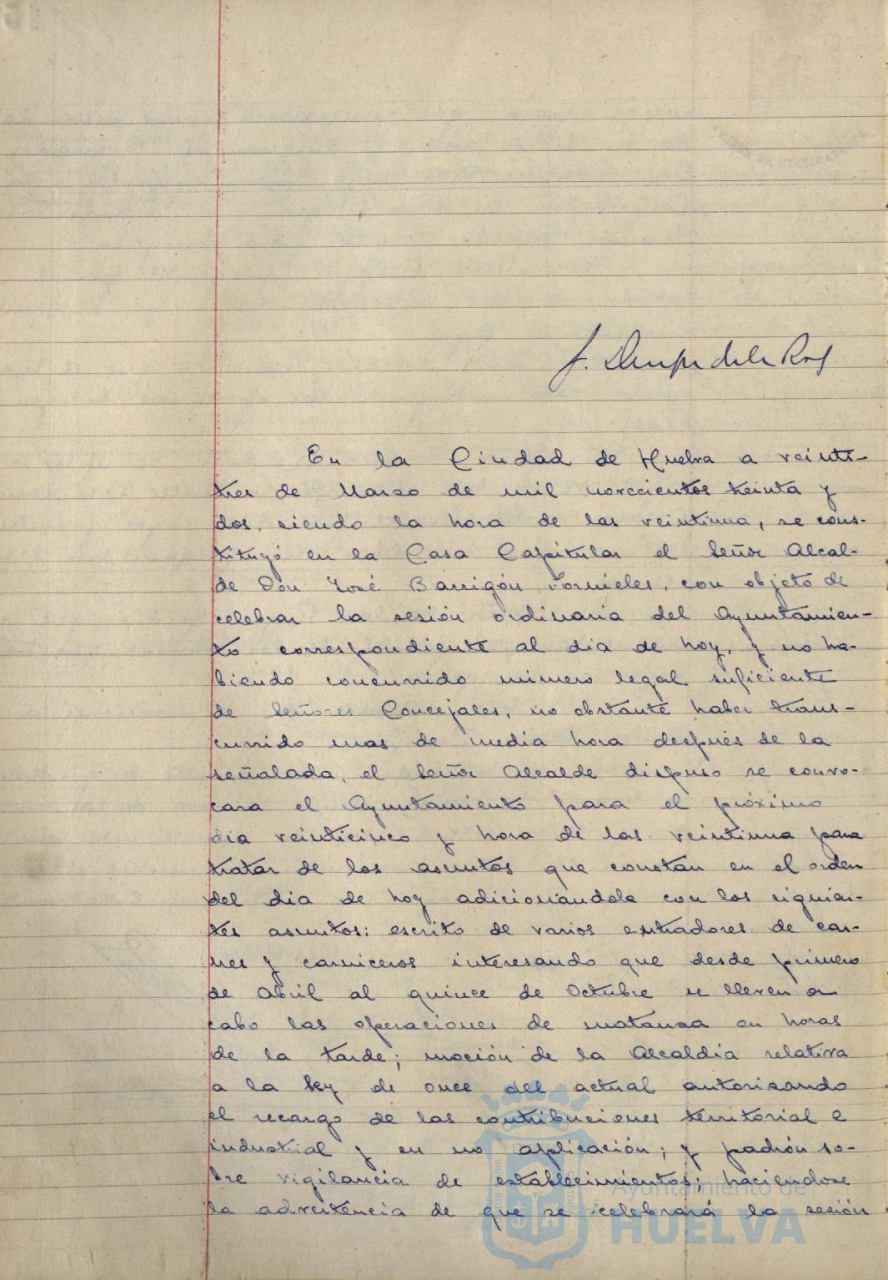 En la Ciudad de Huelva a veinti-
tres de Marzo de mil novecientos treinta y
dos, siendo la hora de las veintiuna, se cons-
tituyó en la Casa Capitular el Señor Alcal-
de Don José Barrigón Fornieles, con objeto de
celebrar la sesión ordinaria del Ayuntamien-
to correspondiente al dia de hoy, y no ha-
biendo concurrido número legal suficiente
de Señores Concejales, no obstante haber trans-
currido mas de media hora después de la
señalada, el Señor Alcalde dispuso se convo-
cara el Ayuntamiento para el próximo
dia veinticinco y hora de las veintiuna para
tratar de los asuntos que constan en el orden
del dia de hoy adicionándole con los siguien-
tes asuntos: escrito de varios entradores de car-
nes y carniceros interesando que desde primero
de Abril al quince de Octubre se lleven a
cabo las operaciones de matanza en horas
de la tarde; moción de la Alcaldía relativa
a la Ley de once del actual autorizando
el recargo de las contribuciones territorial e
industrial y en no aplicación; y padrón so-
bre vigilancia de establecimientos; haciendose
la advertencia de que se celebrará la sesión
Ayuntamiento de
HUELVA